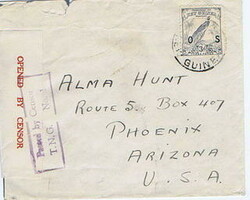 O S
GUINEA
OPENED BY CENSOR
Passed by Censor
T.N.G.
ALMA HUNT
ROUTE 5. BOX 407
PHOENIX
ARIZONA
U. S. A.